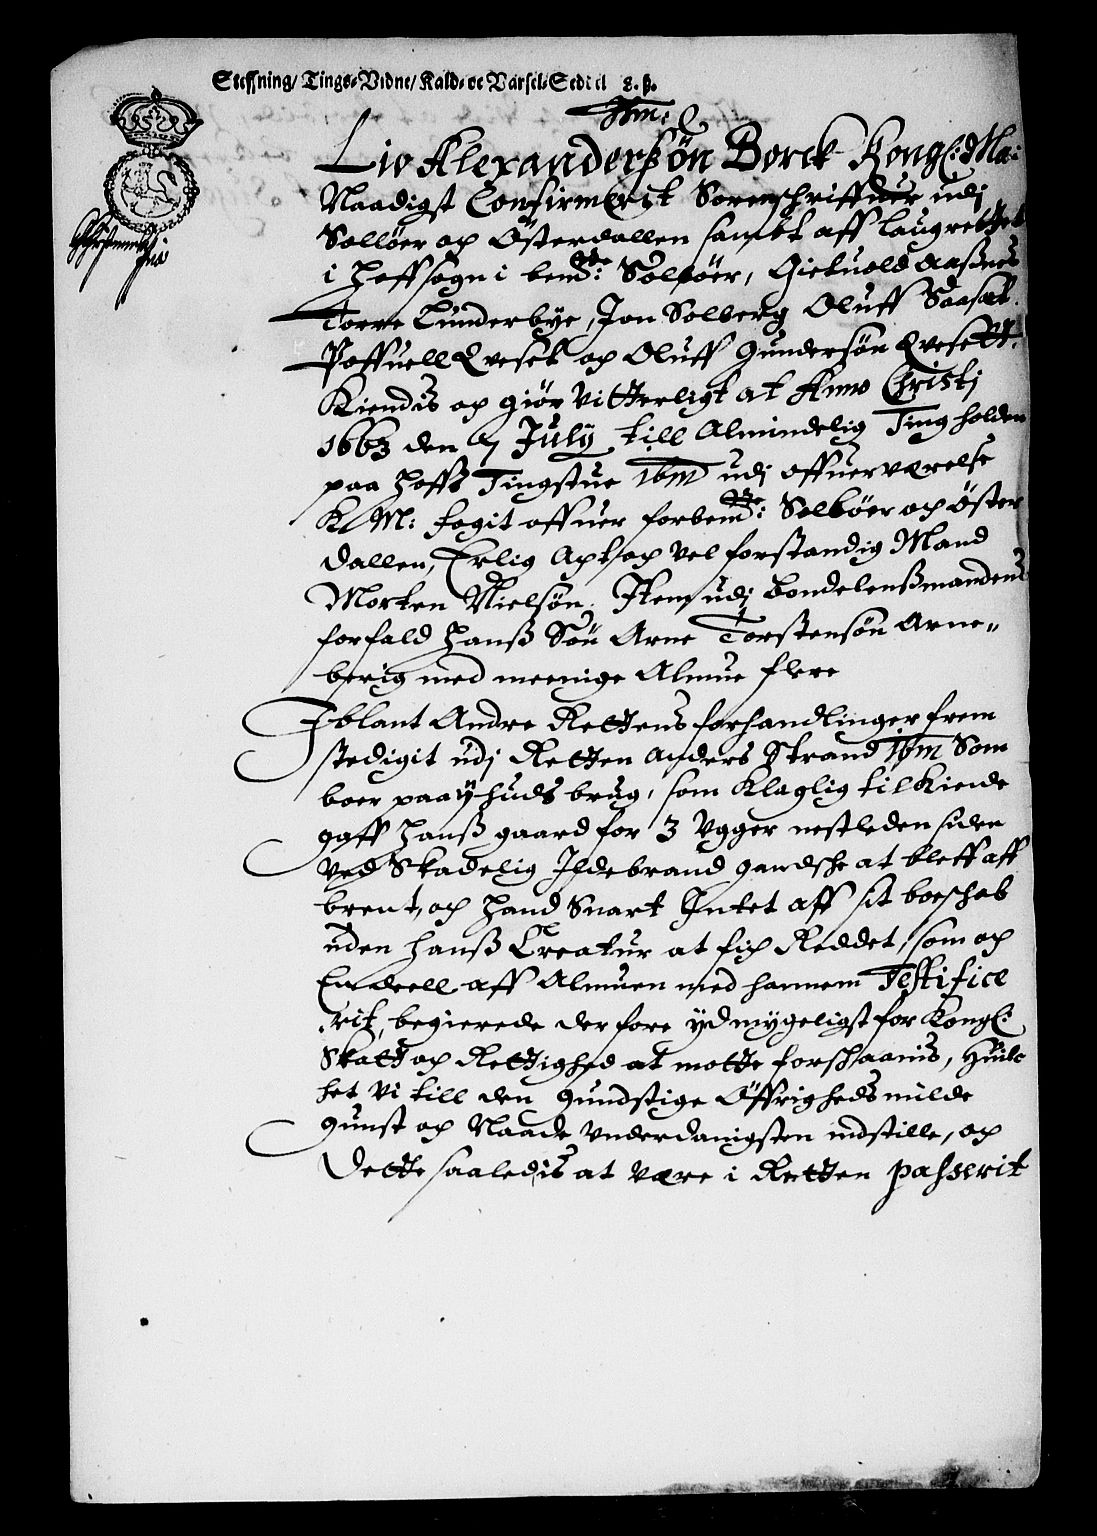 Steffning/ Tings-Vidne/ Kald- oc Varsel-Seddel 8. ß.
Liv Alexandersøn Borck Kongl: Ma:
Naadigst Confirmerit Sorenschriffuer udj
Solløer och Østerdallen sambt aff laugrettet
i Hoffsogn i bemte: Soløer, Gietuold Aaßnes
Torre Lunderbye, Jon Solberg Oluff Saasæt
Poffuell Qveset och Oluff Gundersøn Qvesett:
Kiendis och giør Vitterligt at Anno Christj
1663 den 7 July till Almindelig Ting holden
paa Hoffs Tingstue Ibm udj offuerværelse
K M: fogit offuer forbemte: Soløer och Øster
dallen, Erlig Agt och vel forstandig Mand
Morten Nielsøn. Item udj Bondelenßmandens
forfald Hanß Søn Arne Torstensøn Arne-
berig med meenige Almue flere
Iblant Andre Rettens forhandlinger frem
stedigit udj Retten Anders Strand Ibm Som
boer paa ½ huds brug, som Klaglig tilkiende
gaff Hanß gaard for 3 Vgger nestleden siden
ved Skadelig Ildebrand gandsche at bleff aff
brent, och Hand Snart Intet aff sit boeschab
uden hanß Creatur at fich Reddet, som och
Endeell aff Almuen med hannem Testifice
rit, begierede der fore ydmygeligst for Kongl:
Skatt och Rettighed at motte forschaanis, Huilc
ket Vi till den gundstige Øffrigheds milde
gunst och Naade Vnderdanigsten indstille, och
Dette saaledis at være i Retten passerit